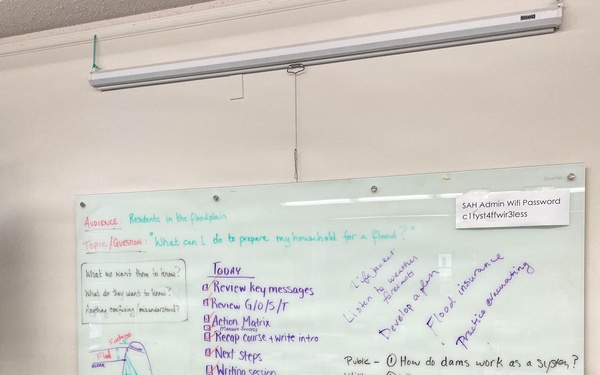 SAH Admin Wifi Password
c1tyst4ffwir3less
AUDIENCE: Residents in the floodplain
TOPIC/QUESTION: "What can I do to prepare my household for a flood?"
What we want them to know?
What do they want to know?
Anything confusing/misunderstood?
TODAY
Review key messages
Review G/O/S/T
Action Matrix
Measure Success
Recap course + Write intro
Next Steps
Writing session
Listen to weather
forecasts
Develop a plan
Flood insurance
Practice evacuating
Public - ① How do dams work as a system?